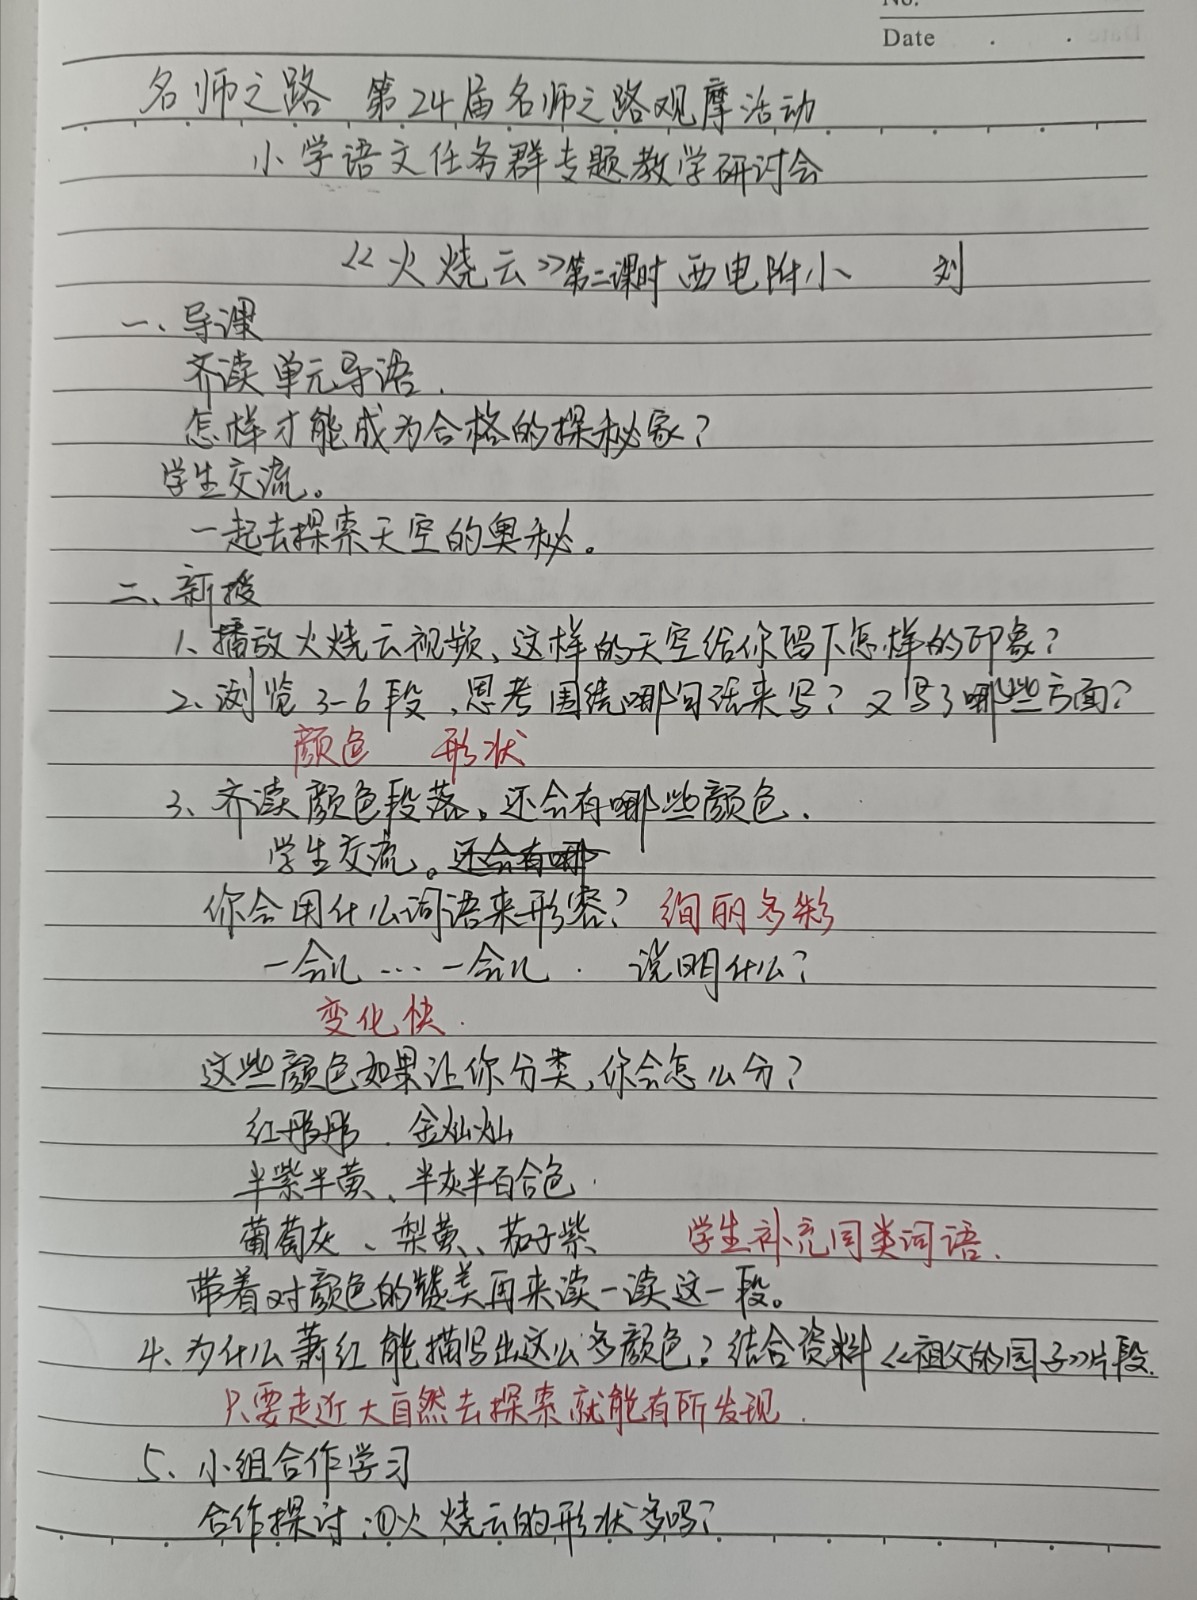 No.
Date . .
名师之路 第24届名师之路观摩活动
小学语文任务群专题教学研讨会
《火烧云》第二课时 西电附小 刘
一、导课
齐读单元导语.
怎样才能成为合格的探秘家?
学生交流。
一起去探索天空的奥秘。
二、新授
1、播放火烧云视频、这样的天空给你留下怎样的印象?
2、浏览3-6段,思考围绕哪句话来写?又写了哪些方面?
颜色 形状
3、齐读颜色段落。还会有哪些颜色.
学生交流。还会有哪
你会用什么词语来形容? 绚丽多彩
一会儿…一会儿. 说明什么?
变化快.
这些颜色如果让你分类,你会怎么分?
红彤彤、金灿灿
半紫半黄、半灰半百合色.
葡萄灰、梨黄、茄子紫 学生补充同类词语.
带着对颜色的赞美再来读一读这一段。
4、为什么萧红能描写出这么多颜色?结合资料《祖父的园子》片段.
只要走近大自然去探索就能有所发现.
5、小组合作学习
合作探讨:①火烧云的形状多吗?